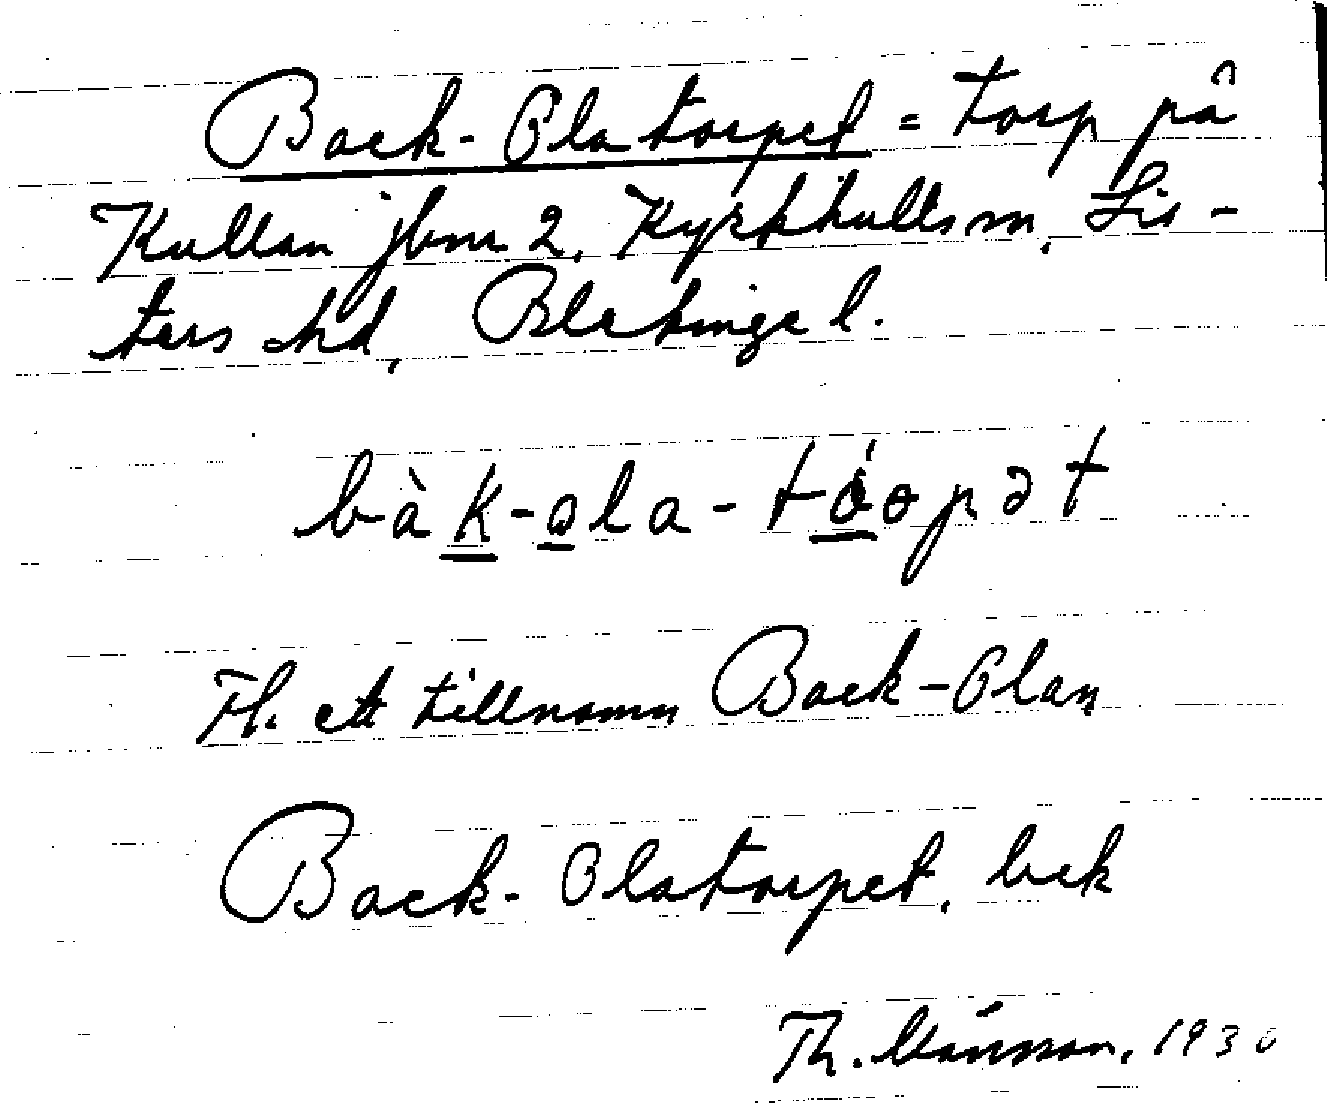 Back-Olatorpet = torp på
Kullan jbnr 2, Kyrkhults sn, Lis-
ters hd, Blekinge l.
bàk-ola-tóopət
Fh. ett tillnamn Back-Olan
Back-Olatorpet, bek
Th. Månsson, 1930